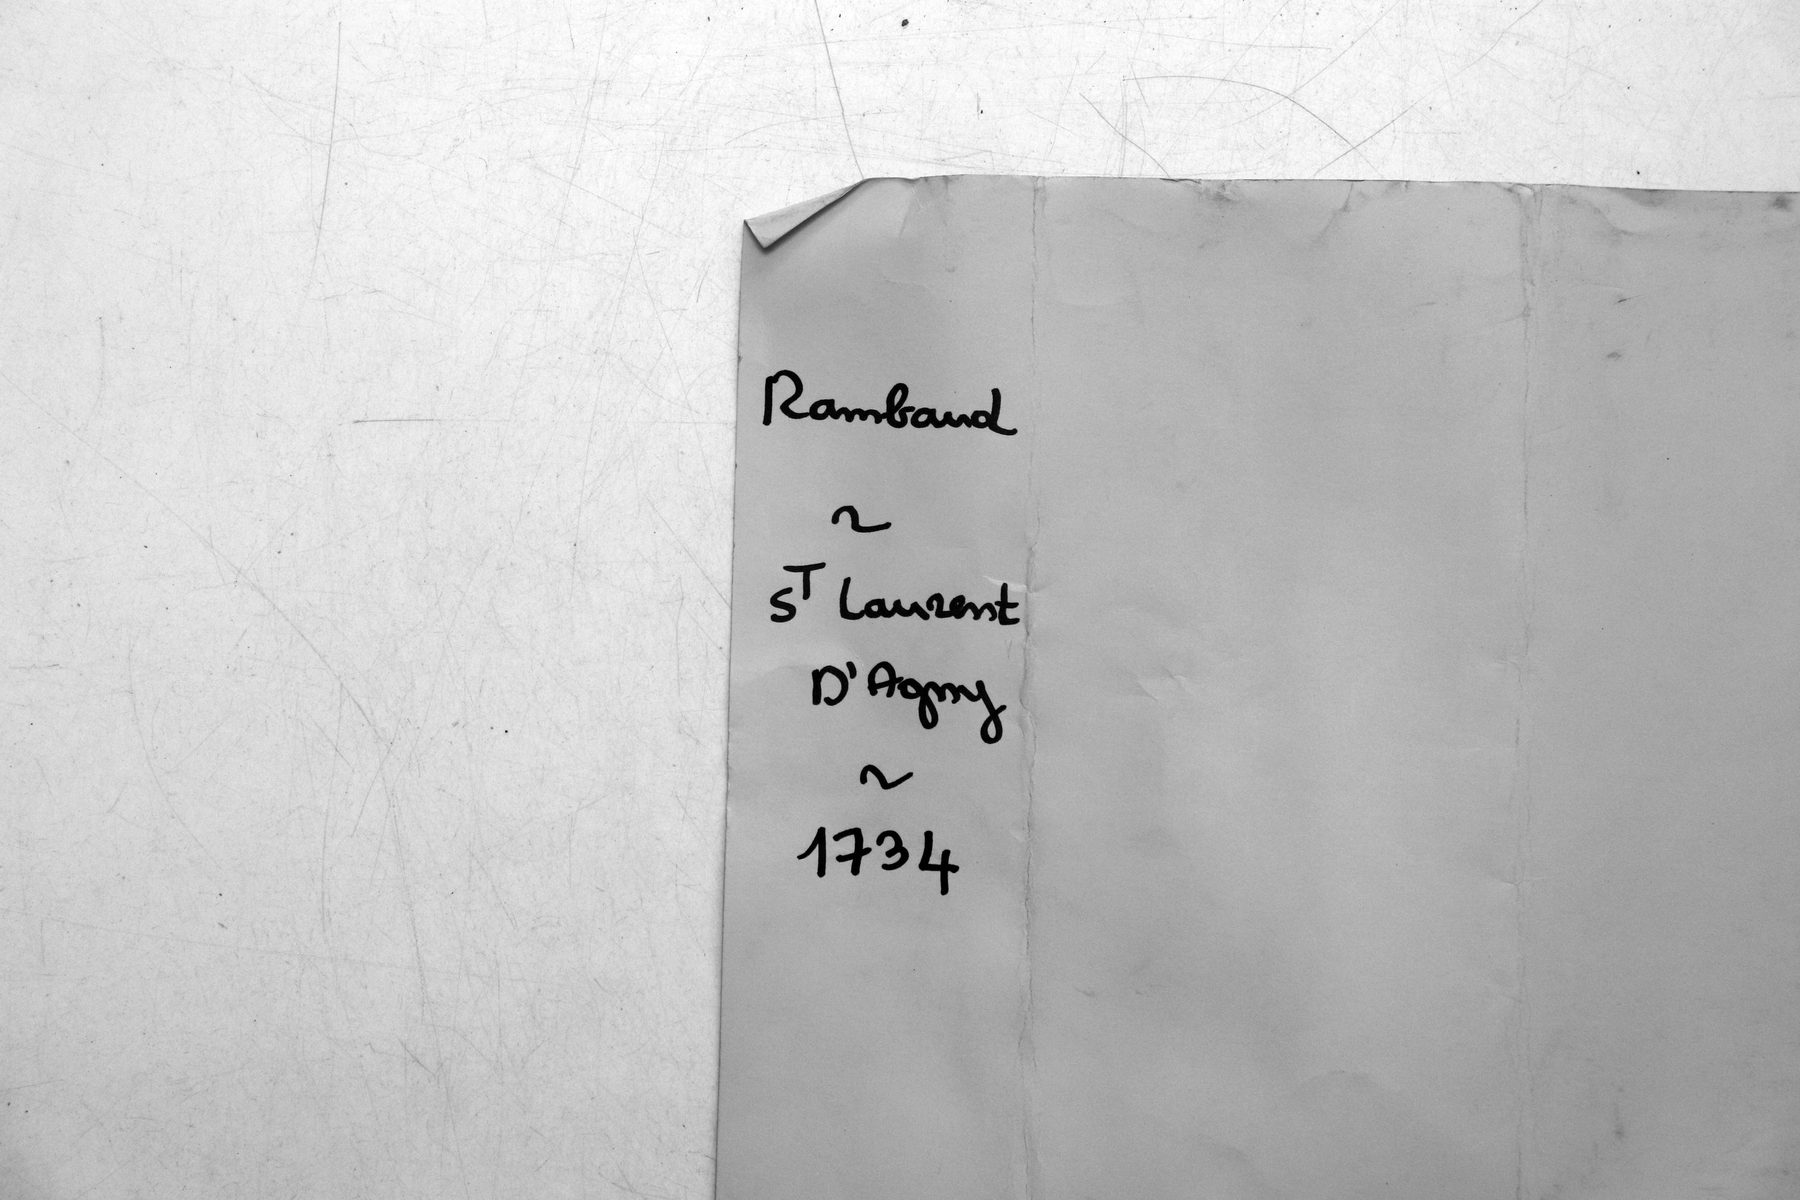 Rambaud
~
ST Laurent
D'Agny
~
1734